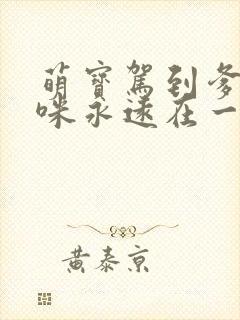 萌寶駕到爹
咪永遠在一
黃泰京